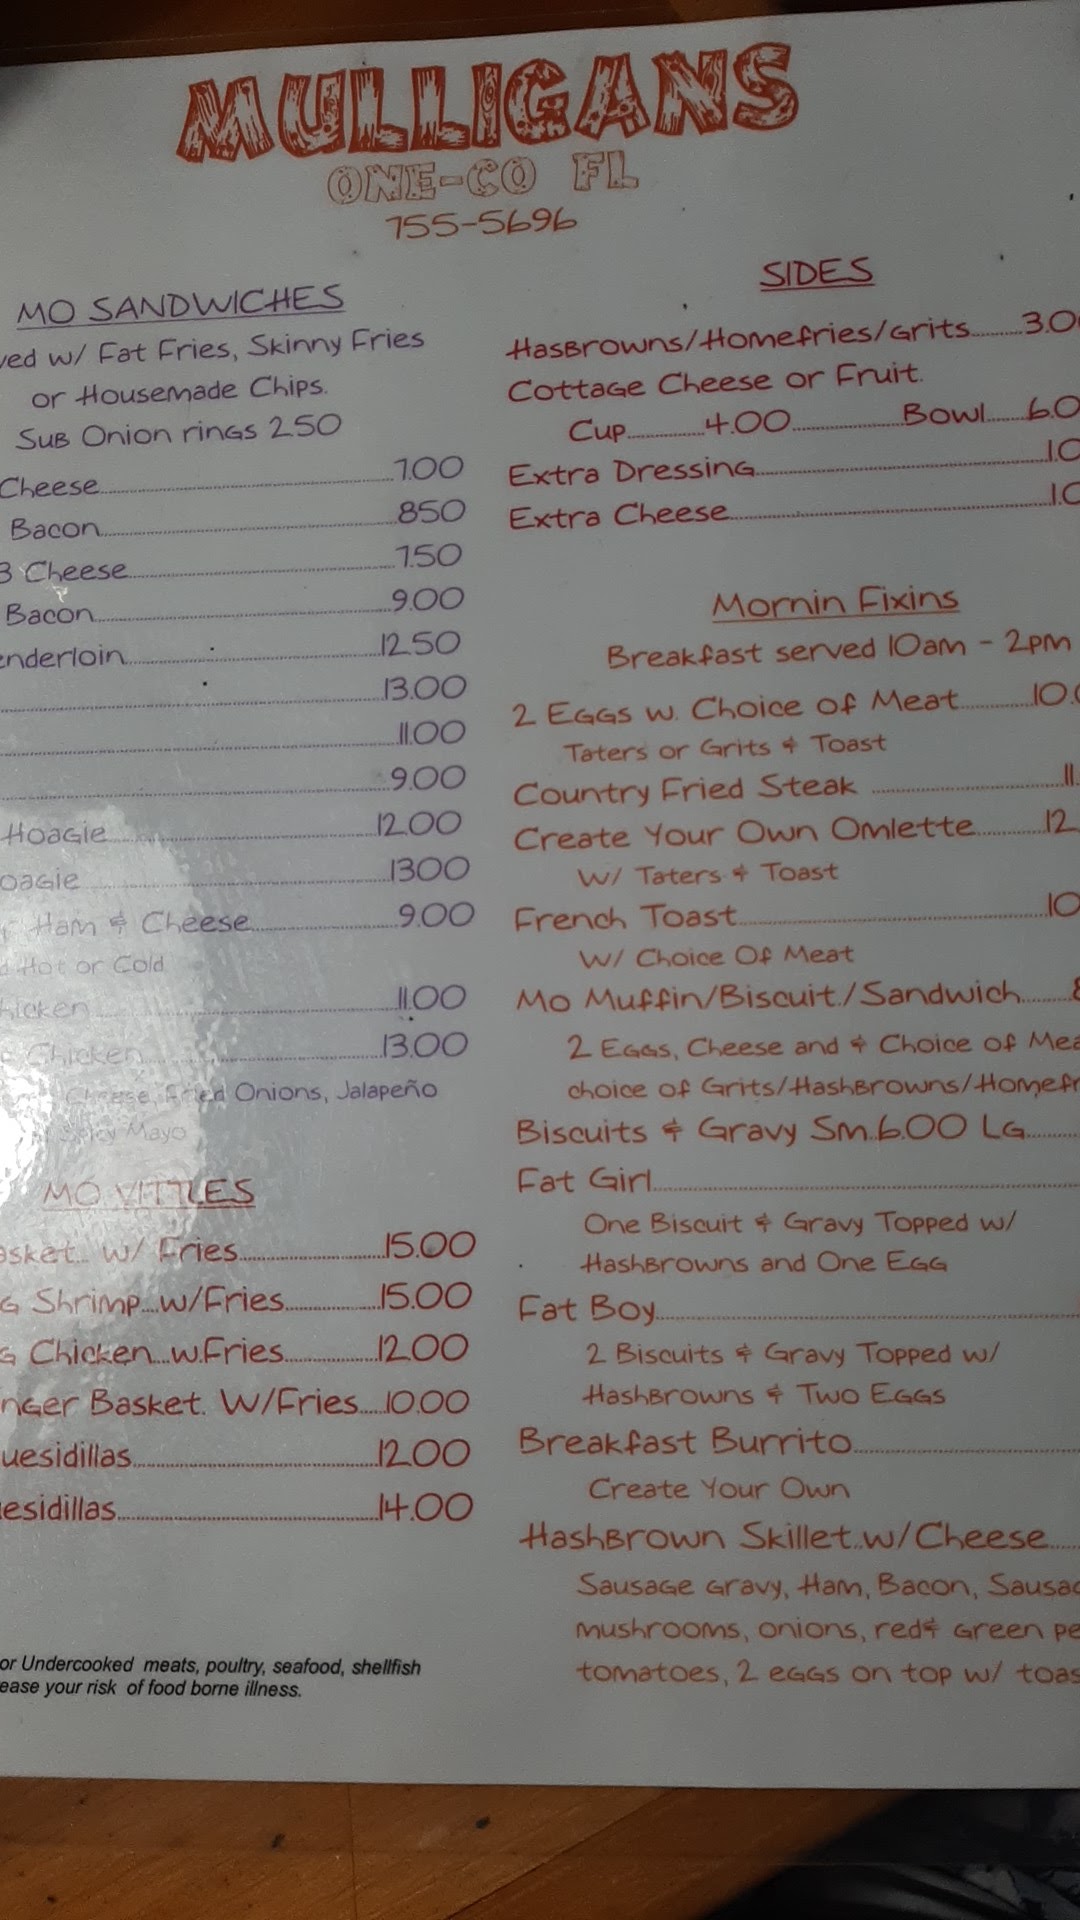 MULLIGANS
ONE-CO FL
755-5696
MO SANDWICHES
w/ Fat Fries, Skinny Fries
or Housemade Chips.
Sub Onion rings 2.50
Cheese 7.00
Bacon 8.50
3 Cheese 7.50
Bacon 9.00
12.50
13.00
11.00
9.00
Hoagie 12.00
13.00
Ham & Cheese 9.00
Hot or Cold
11.00
Chicken 13.00
Cheese, Fried Onions, Jalapeño
Spicy Mayo
MO VITTLES
w/ Fries 15.00
Shrimp w/Fries 15.00
Chicken w.Fries 12.00
Basket. W/Fries 10.00
12.00
14.00
or Undercooked meats, poultry, seafood, shellfish
your risk of food borne illness.
SIDES
HasBrowns/Homefries/Grits
Cottage Cheese or Fruit.
Cup 4.00 Bowl
Extra Dressing
Extra Cheese
Mornin Fixins
Breakfast served 10am - 2pm
2 Eggs w. Choice of Meat
Taters or Grits & Toast
Country Fried Steak
Create Your Own Omlette
W/ Taters & Toast
French Toast
W/ Choice Of Meat
Mo Muffin/Biscuit/Sandwich
2 Eggs, Cheese and & Choice of
choice of Grits/HashBrowns/
Biscuits & Gravy Sm 6.00 LG
Fat Girl
One Biscuit & Gravy Topped w/
HashBrowns and One Egg
Fat Boy
2 Biscuits & Gravy Topped w/
HashBrowns & Two Eggs
Breakfast Burrito
Create Your Own
HashBrown Skillet w/Cheese
Sausage gravy, Ham, Bacon,
mushrooms, onions, red& green
tomatoes, 2 eggs on top w/